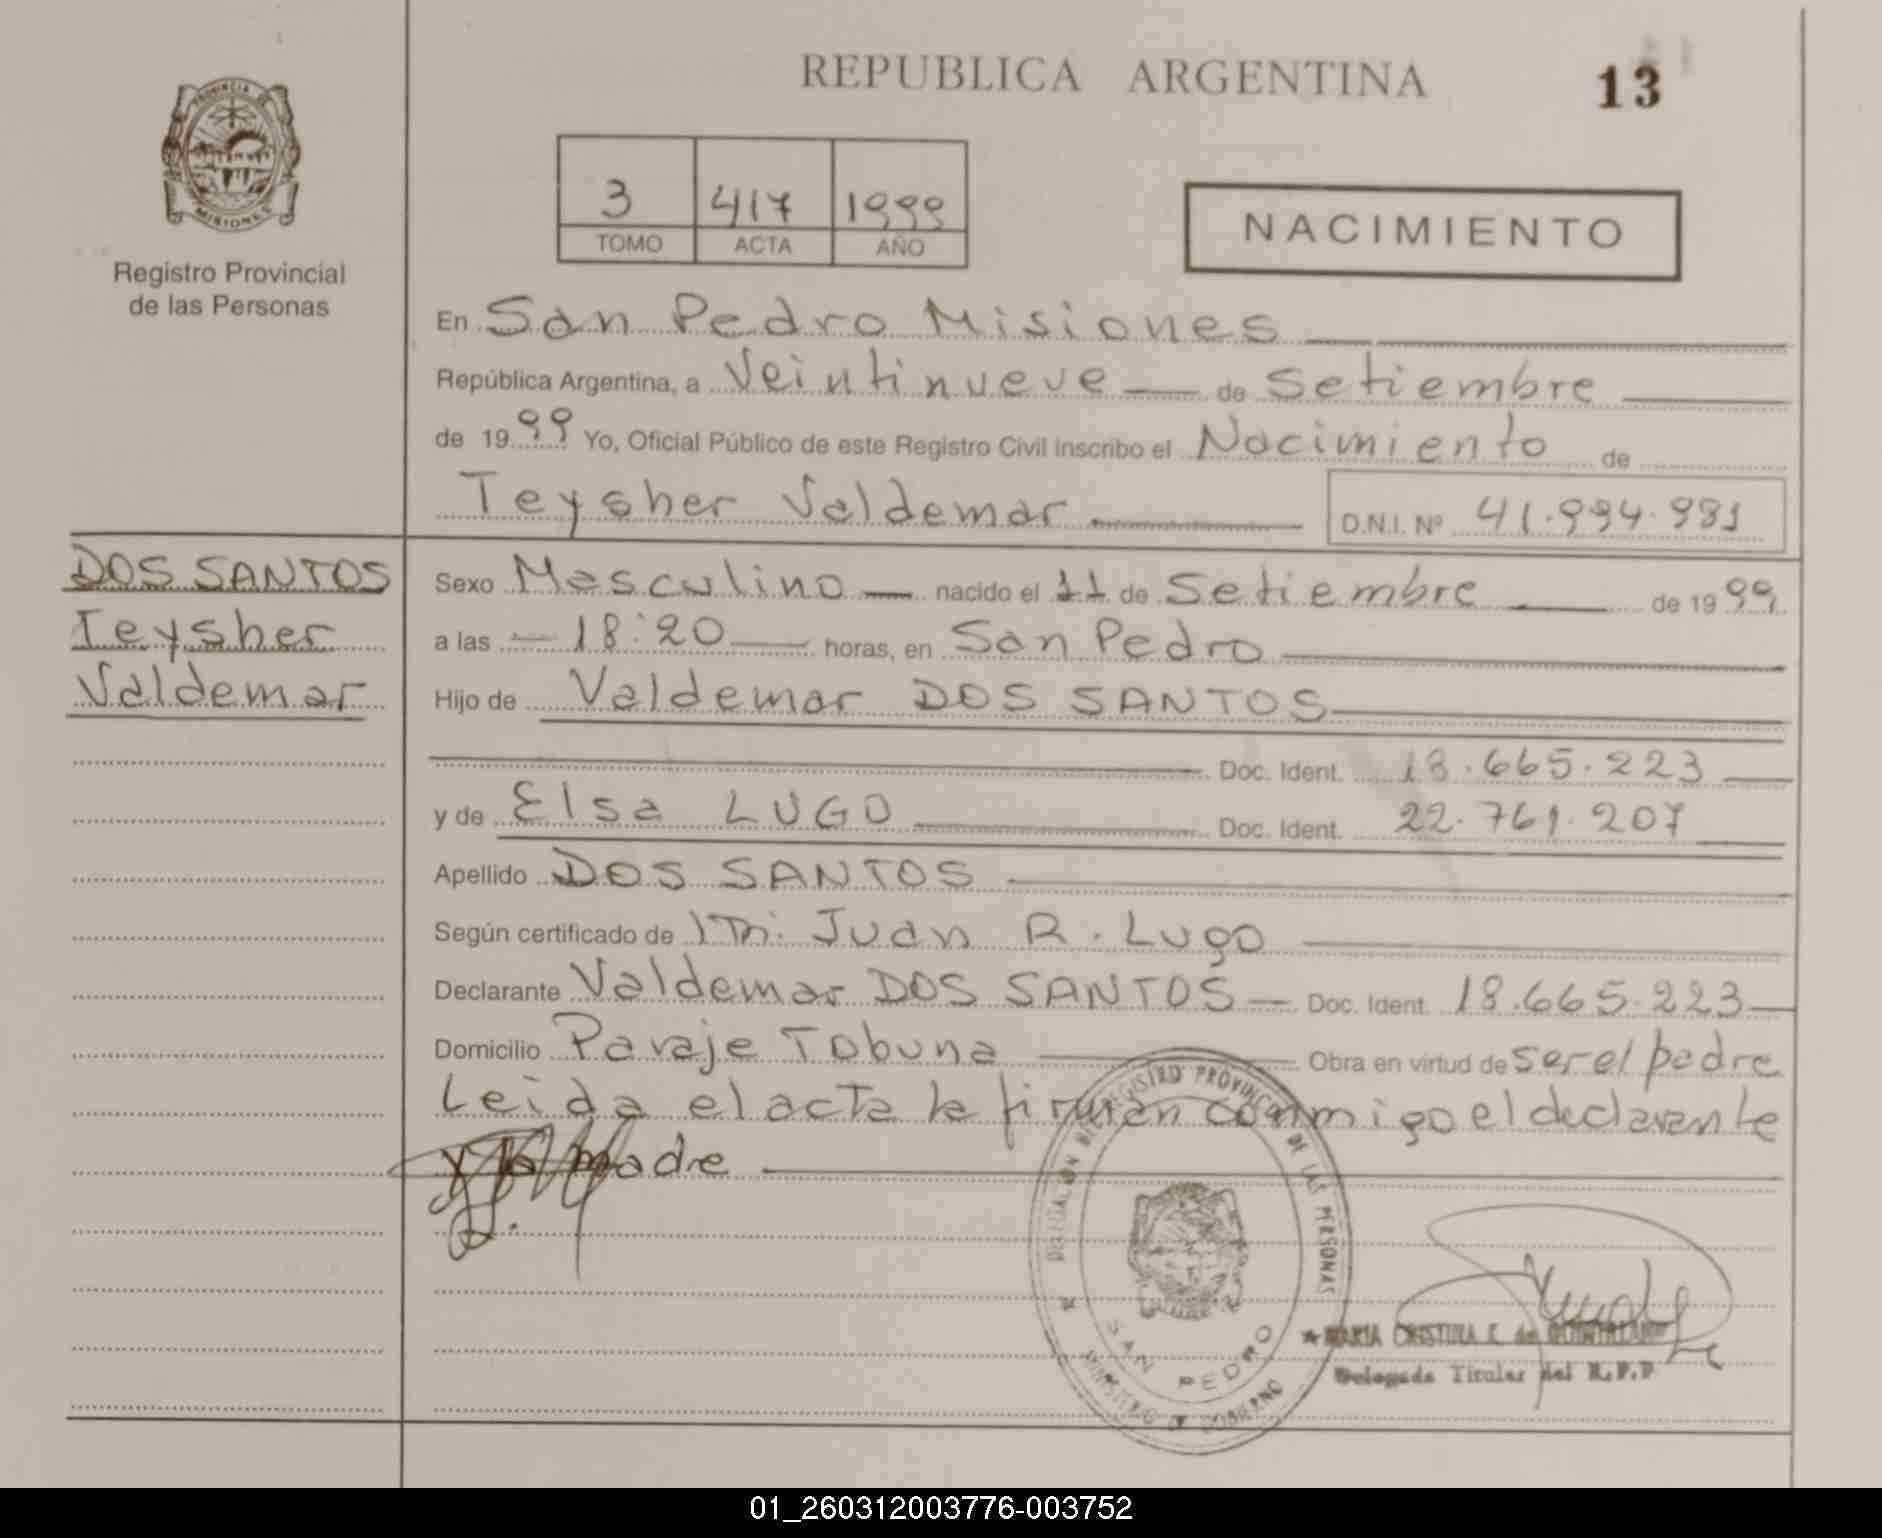 REPUBLICA ARGENTINA
13
PROVINCIA DE
MISIONES
Registro Provincial
de las Personas
3 417 1999
TOMO ACTA AÑO
NACIMIENTO
En San Pedro Misiones
República Argentina, a Veintinueve de Setiembre
de 1999 Yo, Oficial Público de este Registro Civil inscribo el Nacimiento de
Teysher Valdemar D.N.I. Nº 41.994.981
DOS SANTOS
Teysher
Valdemar
Sexo Masculino nacido el 11 de Setiembre de 1999
a las 18:20 horas, en San Pedro
Hijo de Valdemar DOS SANTOS
Doc. Ident. 18.665.223
y de Elsa LUGO Doc. Ident. 22.761.207
Apellido DOS SANTOS
Según certificado de Juan R. Lugo
Declarante Valdemar DOS SANTOS Doc. Ident. 18.665.223
Domicilio Paraje Tobuna Obra en virtud de ser el padre
Leida el acta la firman conmigo el declarante
y la madre
DELEGACION DEL REGISTRO PROVINCIAL DE LAS PERSONAS
SAN PEDRO
MINISTERIO DE GOBIERNO
MARIA CRISTINA E. de
Delegada Titular del R.P.P
01_260312003776-003752